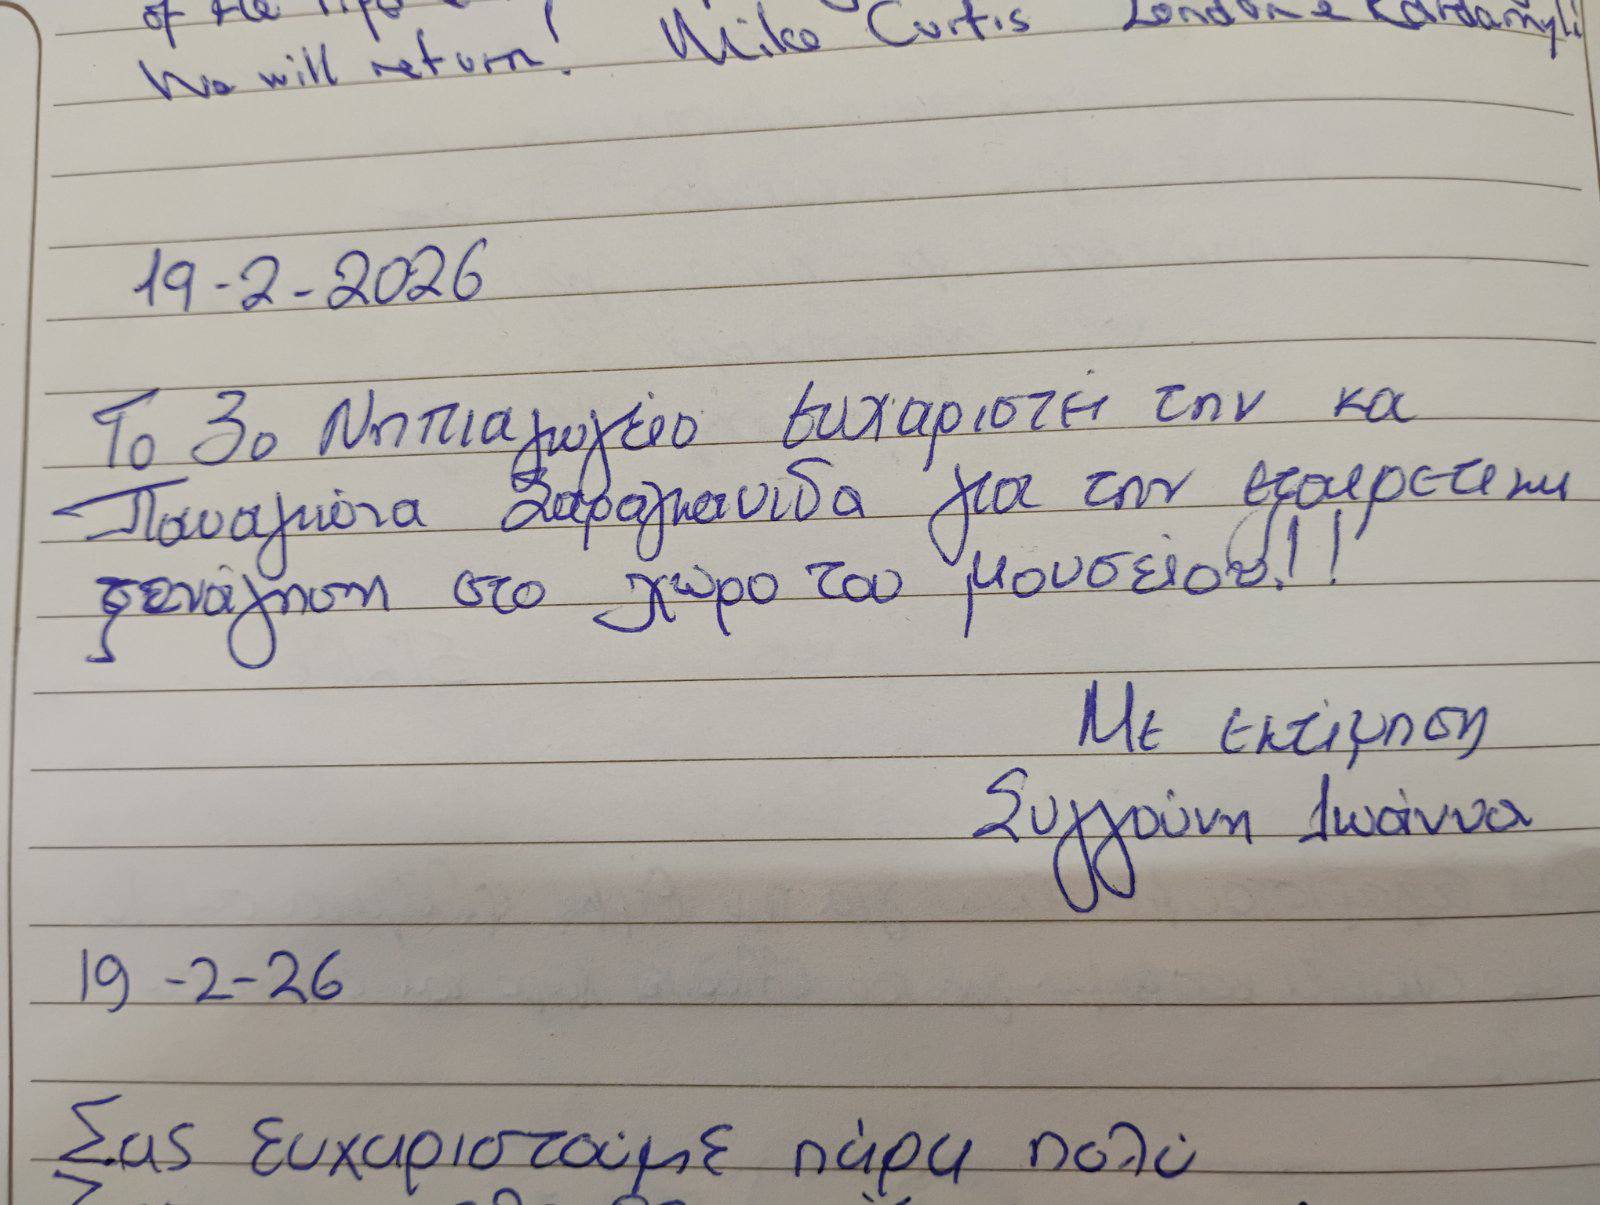 of the
We will return! Mike Curtis London & Kardamyli
19-2-2026
Το 3ο Νηπιαγωγείο ευχαριστεί την κα
Παναγιώτα Σαραγκανίδα για την εξαιρετική
ξενάγηση στο χώρο του μουσείου!!
Με εκτίμηση
Συγγούνη Ιωάννα
19-2-26
Σας ευχαριστούμε πάρα πολύ